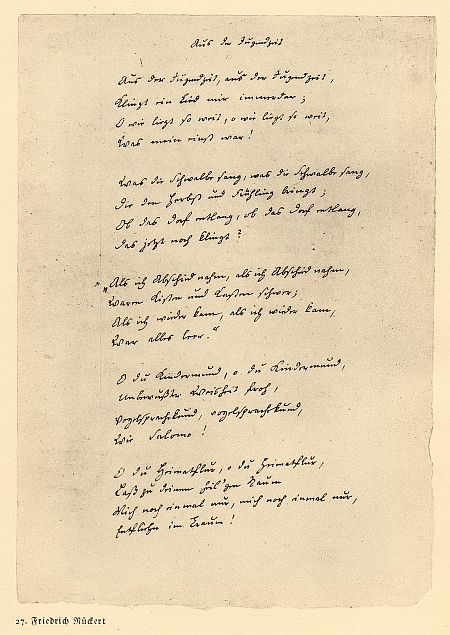 Aus der Jugendzeit
Aus der Jugendzeit, aus der Jugendzeit,
Klingt ein Lied mir immerdar;
O wie liegt so weit, o wie liegt so weit,
Was mein einst war!
Was die Schwalbe sang, was die Schwalbe sang,
Die den Herbst und Frühling bringt;
Ob das Dorf entlang, ob das Dorf entlang,
Das jetzt noch klingt?
„Als ich Abschied nahm, als ich Abschied nahm,
Waren Kisten und Kasten schwer;
Als ich wieder kam, als ich wieder kam,
War alles leer.“
O du Kindermund, o du Kindermund,
Unbewußter Weisheit froh,
Vogelsprachekund, vogelsprachekund,
Wie Salomo!
O du Heimathflur, o du Heimathflur,
Laß zu deinem heil'gen Raum
Mich noch einmal nur, mich noch einmal nur,
Entfliehn im Traum!
27. Friedrich Rückert